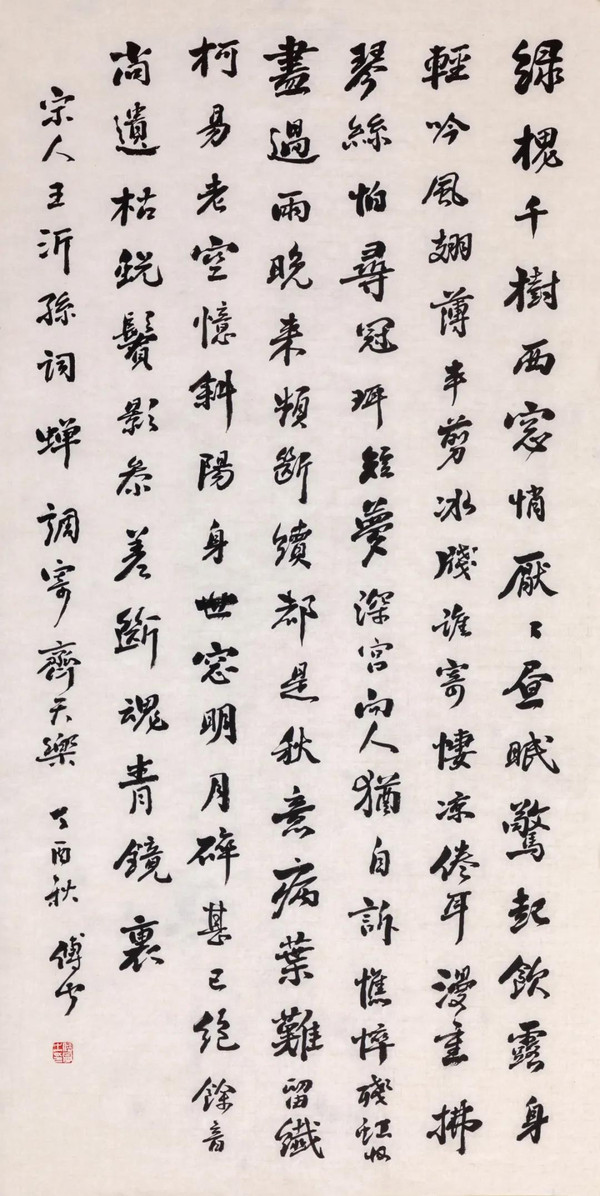 綠槐千樹西窓悄厭〻昼眠驚起飲露身
輕吟風翅薄半剪冰牋誰寄悽凉倦耳漫重拂
琴絲怕尋冠珥短夢深宮向人猶自訴憔悴殘虹收
盡過雨晚来頻斷續都是秋意病葉難留纖
柯易老空憶斜陽身世窓明月碎甚已絕餘音
尚遺枯蛻鬢影參差斷魂青鏡裏
宋人王沂孫詞蟬調寄齊天樂丁酉秋傅